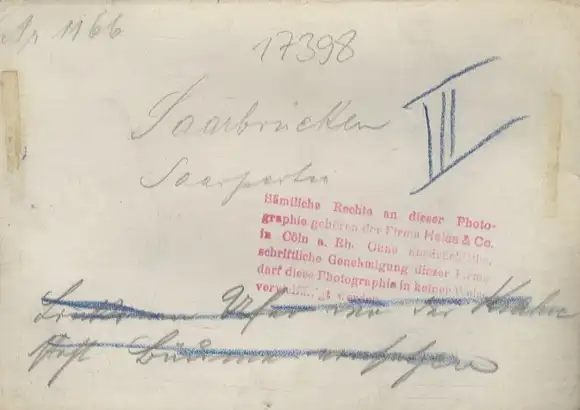 Nr 1166
17398
III
Saarbrücken
Saarpartie
Sämtliche Rechte an dieser Photo-
graphie gehören der Firma Heiss & Co.
in Cöln a. Rh. Ohne ausdrückliche,
schriftliche Genehmigung dieser Firma
darf diese Photographie in keiner Weise
vervielfältigt werden.
Ufer der